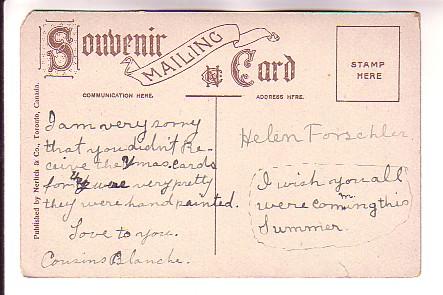 Souvenir
MAILING
Card
COMMUNICATION HERE.
ADDRESS HERE.
STAMP
HERE
Published by Nerlich & Co., Toronto, Canada.
I am very sorry
that you didn't Re-
ceive the Xmas. cards
for they were very pretty
they were hand painted.
Love to you.
Cousins Blanche.
Helen Forschler.
I wish you all
were comming this
Summer.